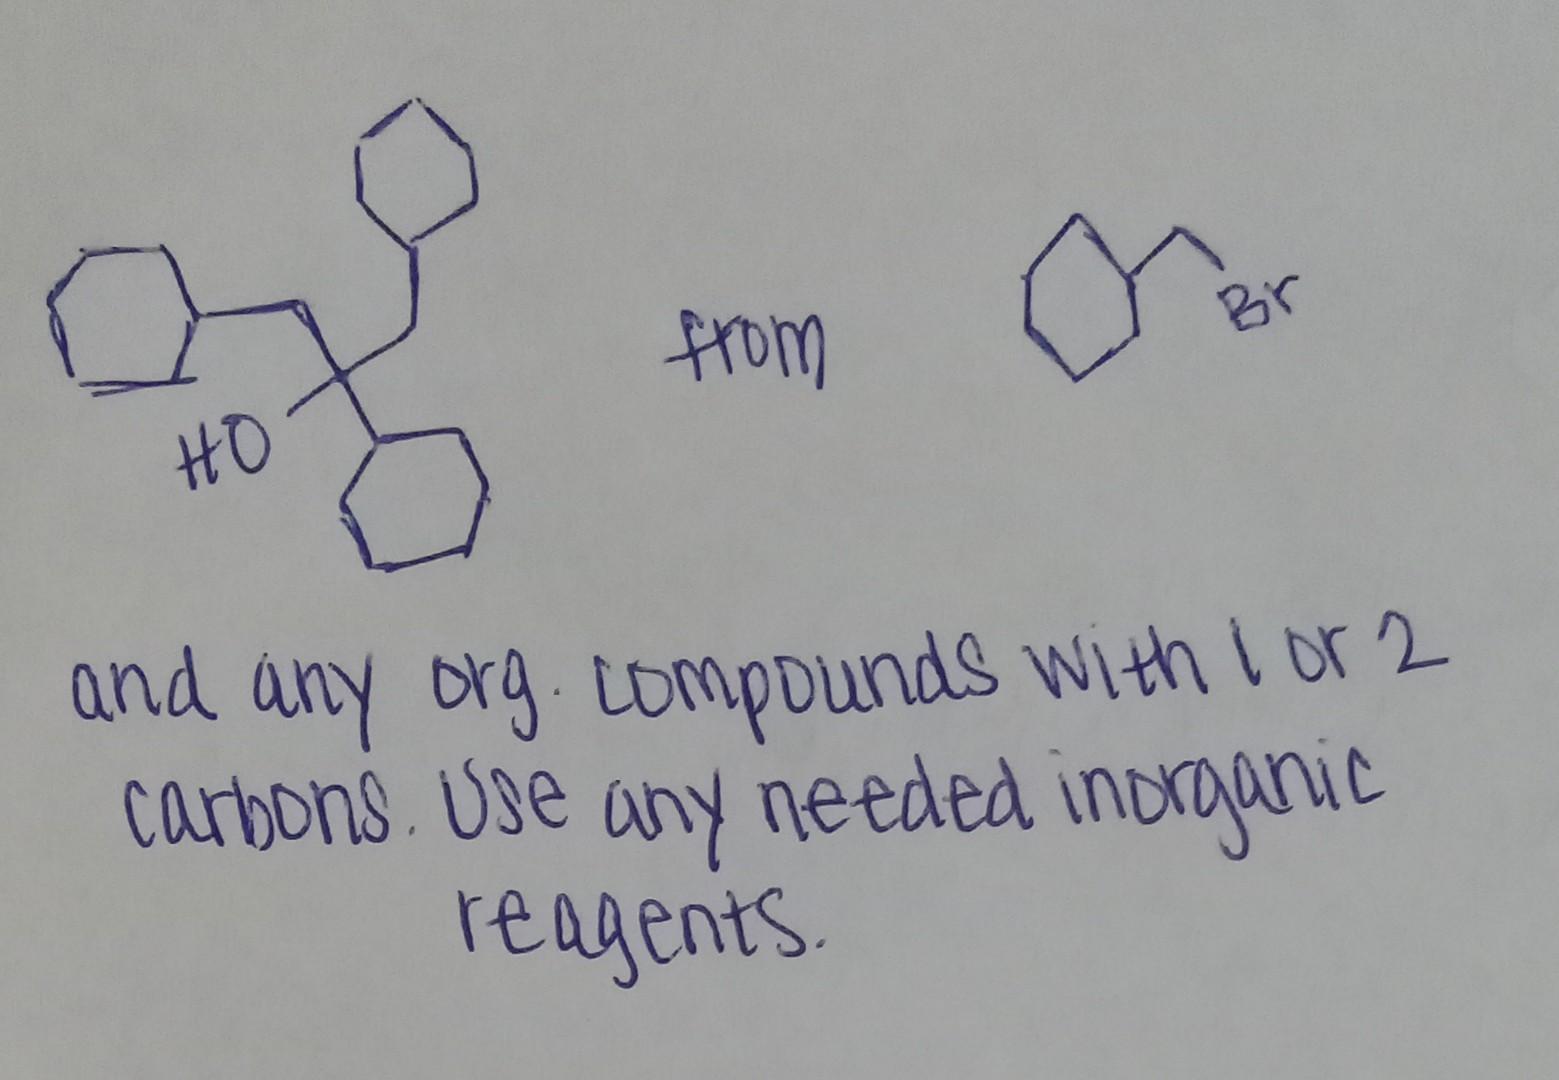 HO
from
Br
and any org. compounds with 1 or 2
carbons. Use any needed inorganic
reagents.